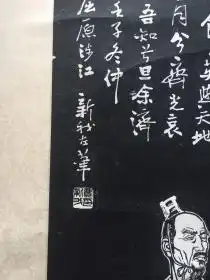 食英與天地
月兮齊光哀
吾知兮旦余濟
壬子冬仲
屈原涉江
新我左筆